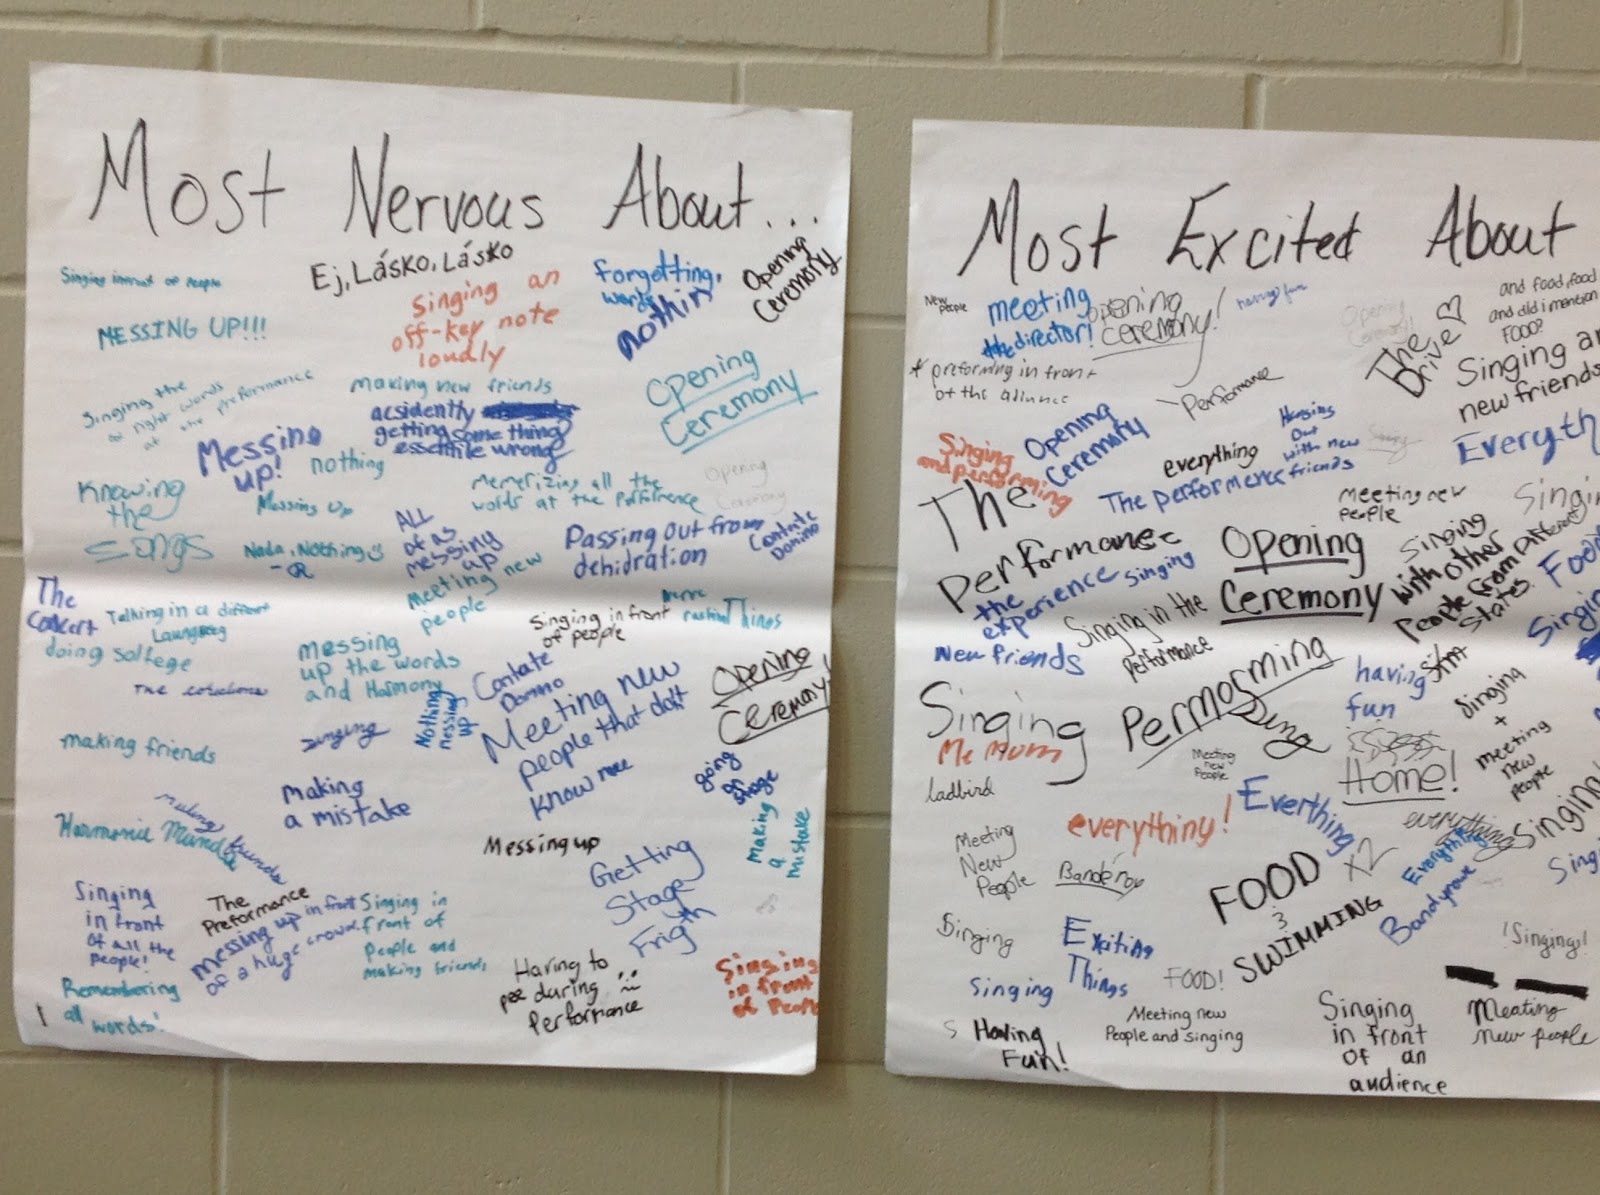 Most Nervous About...
Singing infront of People
Ej, Lásko, Lásko
Singing an
off-key note
loudly
forgetting,
words
nothin
Opening
Ceremony
MESSING UP!!!
Singing the
right words
at the preformance
making new friends
acsidently
getting something
wrong
Opening
Ceremony
Messing
up!
nothing
Knowing
the
songs
Messing up
Memerizing all the
words at the Preformence
Opening
Ceremony
ALL
of us
messing
up
Nada, Nothing
Passing out from
dehidration
Cantate
Domino
meeting new
people
The
Concert
Talking in a diffrent
doing solfege
Singing in front
of people
messing
up the words
and Harmony
Cantate
Domino
Nothing
messing
up
Meeting new
people that don't
know me
Opening
Ceremony
singing
making friends
making
a mistake
going
on
stage
making
a
mistake
making
friends
Harmonic
Messing up
Getting
Stage
Frigth
Singing
in front
of all the
people!
The
Preformance
messing up in front
of a huge crowd
Singing in
front of
People and
making friends
Having to
pee during
Performance
Singing
in front
of People
Remembering
all words!
Most Excited About
New
People
meeting
the director!
opening
ceremony!
having fun
Opening
Ceremony!
The
Drive
and food, food
and did i mention
FOOD?
* preforming in front
of the
Performance
Singing
new friends
Singing
and performing
Opening
Ceremony
everything
Hanging
Out
with new
friends
Everyth
The
performance
The performence
Meeting new
people
Singin
the
experience
Singing
Opening
Ceremony
Singing
with other
People from Different
States
Food
New friends
Singing in the
performance
Singin
Singing
Permorming
Sing
having
fun
Singing
+
meeting
new
people
Me Mum
ladbird
Meeting
new
People
Home!
Everthing
x2
everything
everythiny!
Meeting
New
People
Everything
Singing
FOOD
&
SWIMMING
Singing
Exciting
Things
FOOD!
¡Singing!
Singing
Having
Fun!
Meeting new
People and singing
Singing
in front
of an
audience
Meating
New people